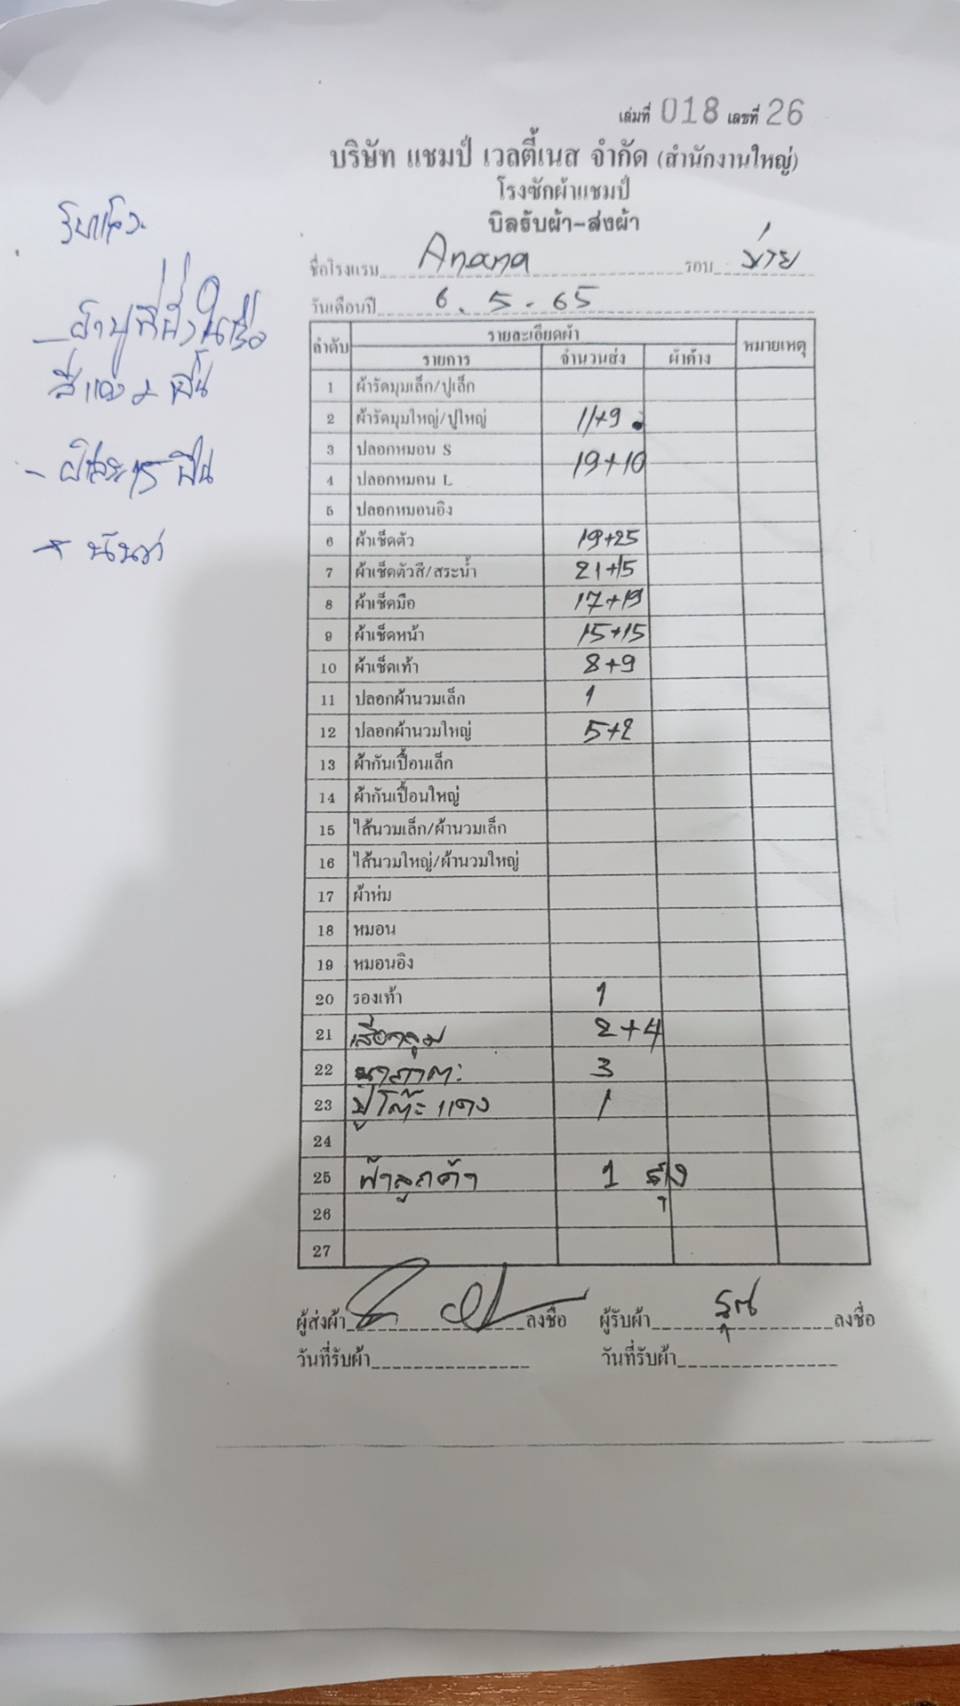 เล่มที่ 018 เลขที่ 26
บริษัท แชมป์ เวลตี้เนส จำกัด (สำนักงานใหญ่)
โรงซักผ้าแชมป์
บิลรับผ้า-ส่งผ้า
ชื่อโรงแรม Anana รอบ บ่าย
วันเดือนปี 6. 5 - 65
ลำดับ รายละเอียดผ้า หมายเหตุ
รายการ จำนวนส่ง ผ้าค้าง
1 ผ้ารัดมุมเล็ก/ปูเล็ก
2 ผ้ารัดมุมใหญ่/ปูใหญ่ 11+9
3 ปลอกหมอน S
19+10
4 ปลอกหมอน L
5 ปลอกหมอนอิง
6 ผ้าเช็ดตัว 19+25
7 ผ้าเช็ดตัวสี/สระน้ำ 21+15
8 ผ้าเช็ดมือ 17+19
9 ผ้าเช็ดหน้า 15+15
10 ผ้าเช็ดเท้า 8+9
11 ปลอกผ้านวมเล็ก 1
12 ปลอกผ้านวมใหญ่ 5+2
13 ผ้ากันเปื้อนเล็ก
14 ผ้ากันเปื้อนใหญ่
15 ไส้นวมเล็ก/ผ้านวมเล็ก
16 ไส้นวมใหญ่/ผ้านวมใหญ่
17 ผ้าห่ม
18 หมอน
19 หมอนอิง
20 รองเท้า 1
21 เสื้อคลุม 2+4
22 3
23 ปูโต๊ะแดง 1
24
25 ผ้าลูกค้า 1 ถุง
26
27
ผู้ส่งผ้า ลงชื่อ ผู้รับผ้า ลงชื่อ
วันที่รับผ้า วันที่รับผ้า
สีแดง 2 ผืน